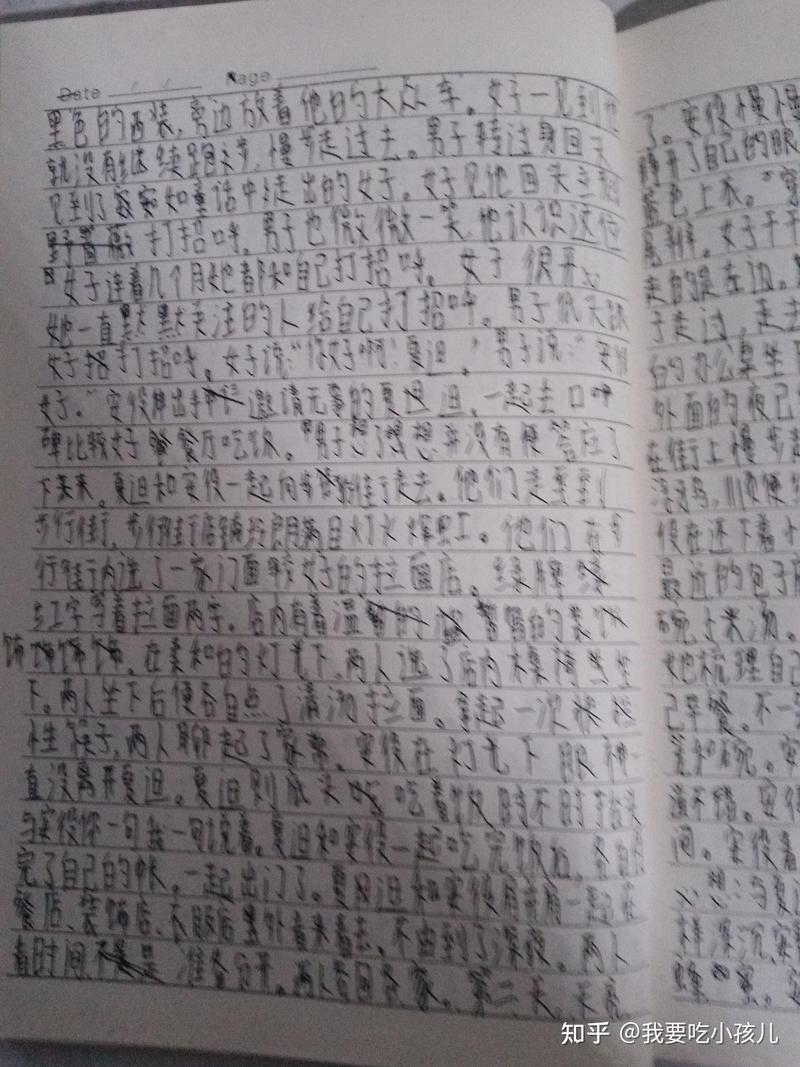 Date / / Page
黑色的西装，旁边放着他的大众车。女子一见到他
就没有继续跑步，慢步走过去。男子转过身回头
见到了宛如童话中走出的女子。女子见他回头立刻
打招呼。男子也微微一笑，他认识这位
女子连着几个月她都和自己打招呼。女子很开心
她一直默默关注的人给自己打招呼。男子低头跟
女子打招呼。女子说：“你好啊！夏迫。”男子说：“安
女子。”安伸出手邀请无事的夏迫，一起去口啤
啤比较好餐厅吃饭。男子想了想并没有便答应了
下来。夏迫和安一起向步行街走去。他们走到
步行街，步行街店铺琳良满目灯火辉虹。他们在步
行街内选了一家门面较好的拉面店。绿牌
红字写着拉面两字。店内有着温的装
饰。在柔和的灯光下，两人选了店内木桌椅坐
下。两人坐下后便各自点了清汤拉面。拿起一次
性筷子，两人聊起了家常。安在灯光下眼神一
直没离开夏迫。夏迫则底头吃着饭时不时抬头
与安你一句我一句说着。夏迫和安一起吃完饭后，各自付
完了自己的帐。一起出门了。夏迫和安肩并肩一起在
餐店、装饰店、衣服店里外看来看去。不由到了深夜。两人
看时间准备分开。两人各回各家。第二天，天亮
了。安慢慢
睁开了自己的眼
蓝色上衣。
尾辫。女子干干
走的是左边。
子走过，走去
的办公桌坐下
外面的夜已
在街上慢步走
在还下着小
最近的包子店
碗小米汤。
她梳理自己
己早餐。不一
筷和碗。安
道不错。安
间。安看
心想：与夏
样深沉，安
蜂蜜。安
知乎 @我要吃小孩儿